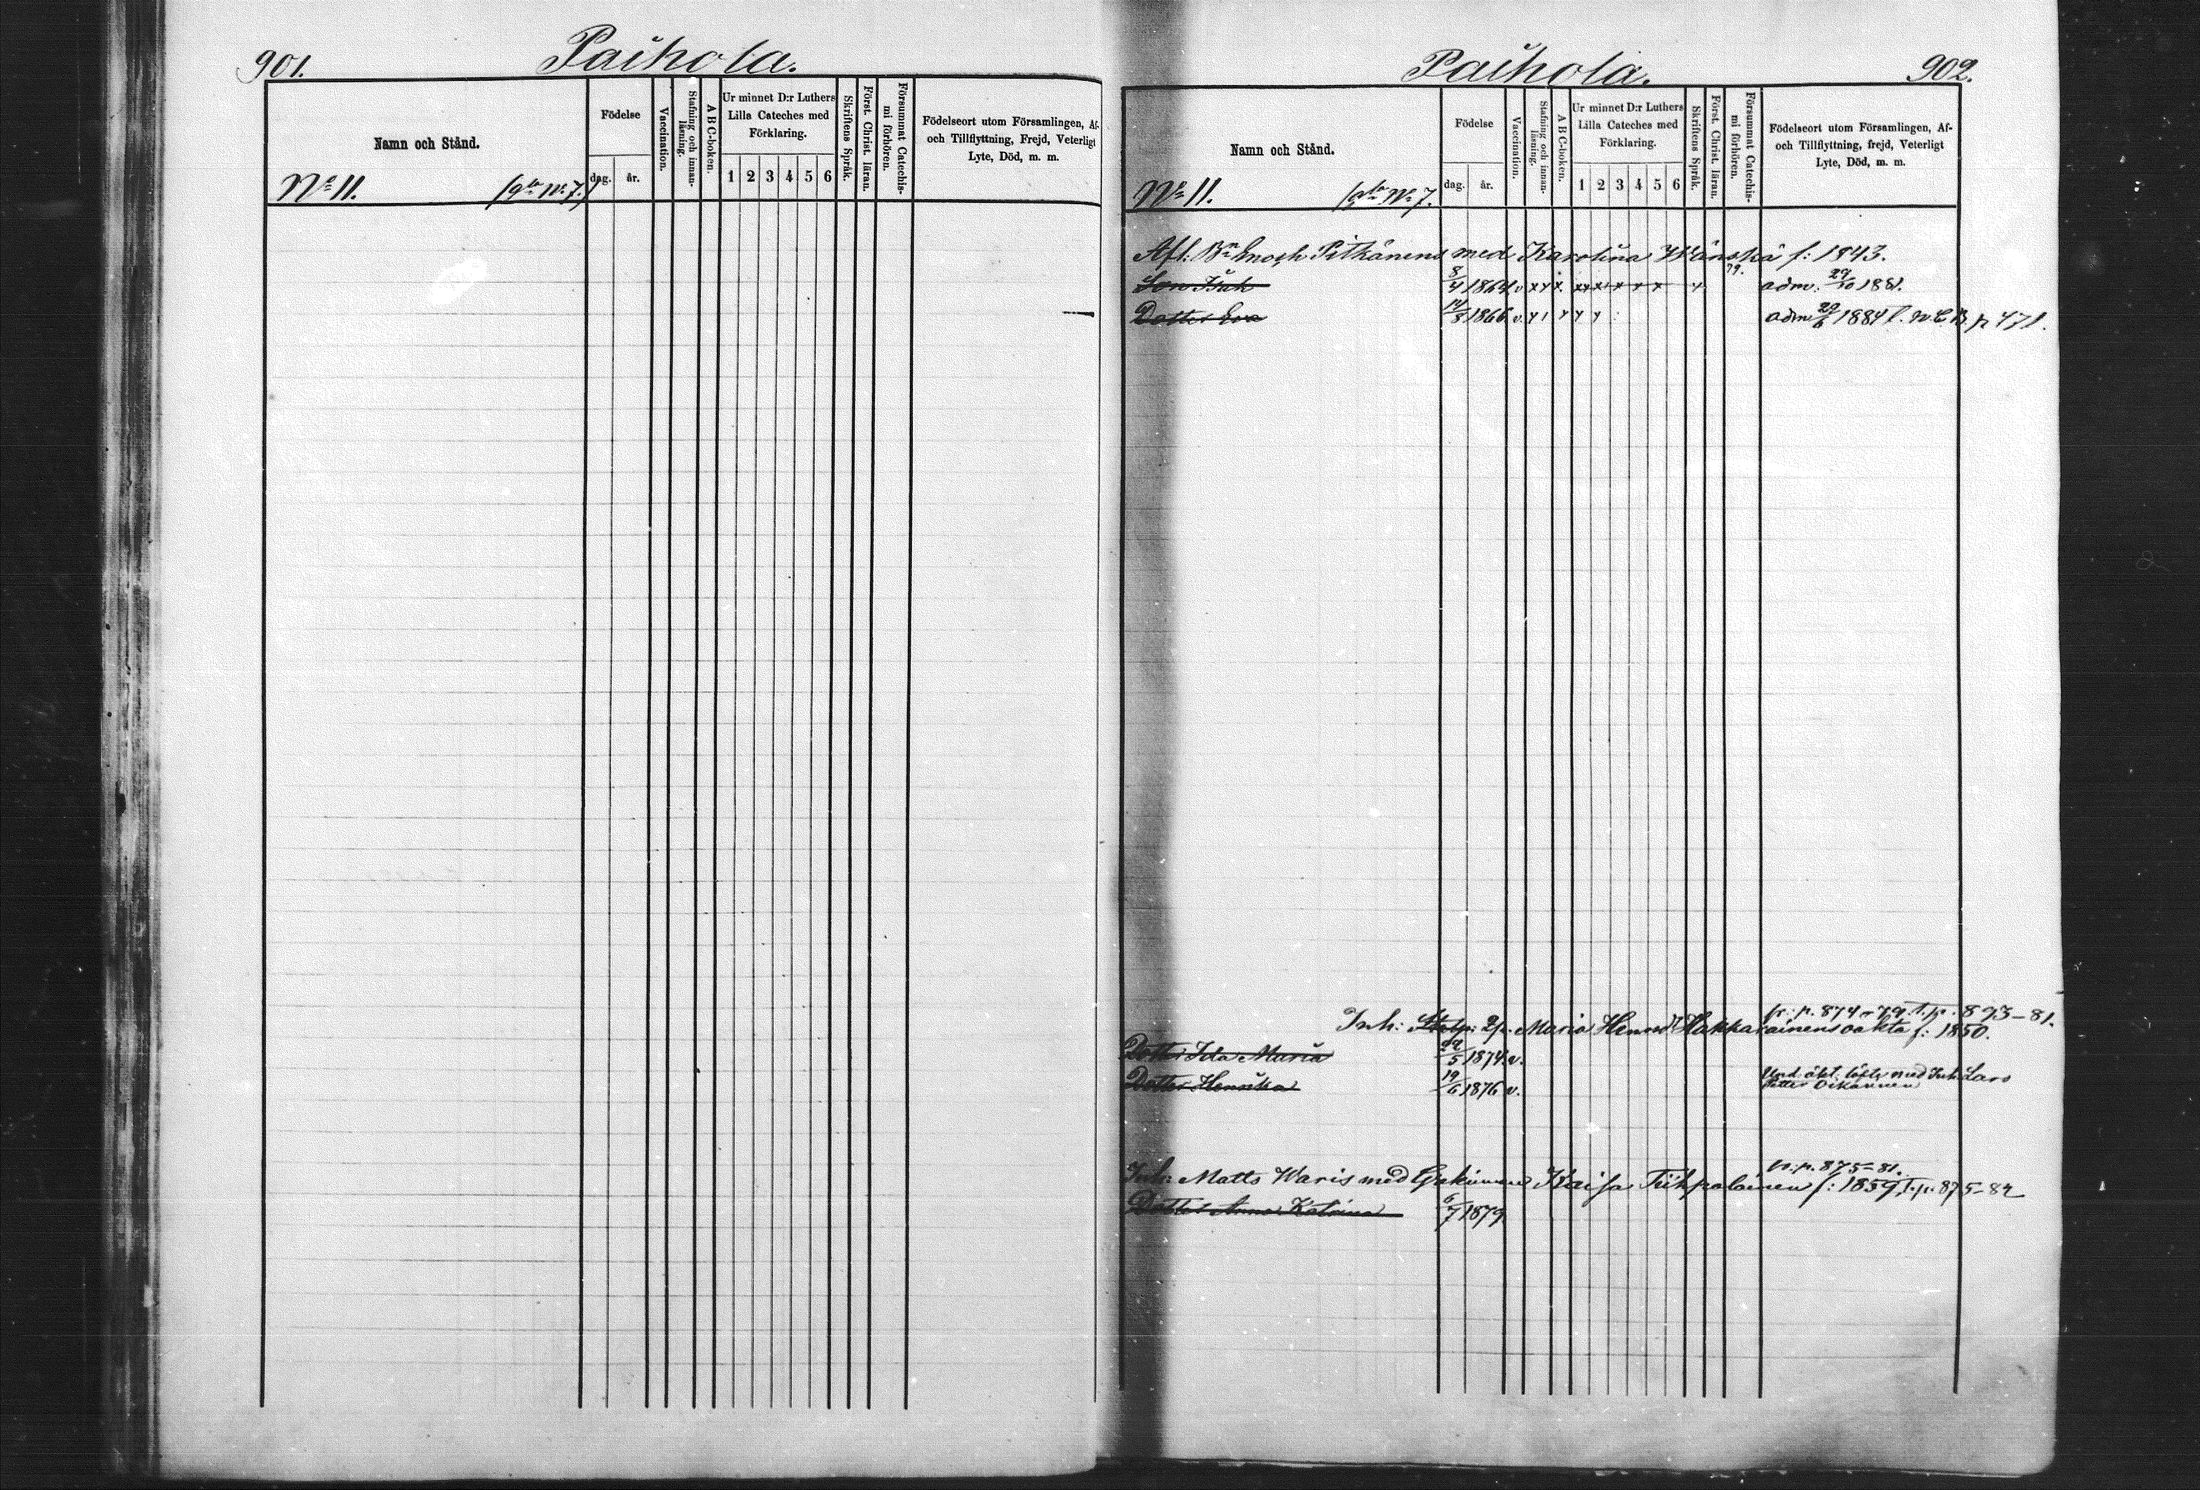 901.
Paihola.
Namn och Stånd.
Födelse
dag.
år.
Vaccination.
Stafning och innan-
läsning.
A B C-boken.
Ur minnet D:r Luthers
Lilla Cateches med
Förklaring.
1 2 3 4 5 6
Skriftens Språk.
Först. Christ. läran.
Försummat Catechis-
mi förhören.
Födelseort utom Församlingen, Af-
och Tillflyttning, Frejd, Veterligt
Lyte, Död, m. m.
No 11.
No 7.
Paihola.
902.
Namn och Stånd.
Födelse
dag.
år.
Vaccination.
Stafning och innan-
läsning.
A B C-boken.
Ur minnet D:r Luthers
Lilla Cateches med
Förklaring.
1 2 3 4 5 6
Skriftens Språk.
Först. Christ. läran.
Försummat Catechis-
mi förhören.
Födelseort utom Församlingen, Af-
och Tillflyttning, frejd, Veterligt
Lyte, Död, m. m.
No 11.
No 7.
Afl. Bn Enoch Pitkänens med Karolina f: 1843.
79.
Son Isak 8/4 1864 v x y x x x x x x x x adm. 29/10 1881.
Dotter Eva 14/8 1866 v. y 1 y y y adm 29/6 1884 l. n. C. B. p 471.
fr. p. 874-79 T. p. 893-81.
Inh: Maria Henr. Hakkarainens oäkta f: 1850.
Dotter Ida Maria 22/5 1874 v.
Dotter Henrika 19/6 1876 v.
Und. äkt. löfte med Inh Lars
Petter Oikarinen
fr. p. 875-81.
Inh: Matts Waris med Kaisa Tiihpalainen f: 1859 T. p. 875-82
Dotter Anna Katrina 6/7 1879